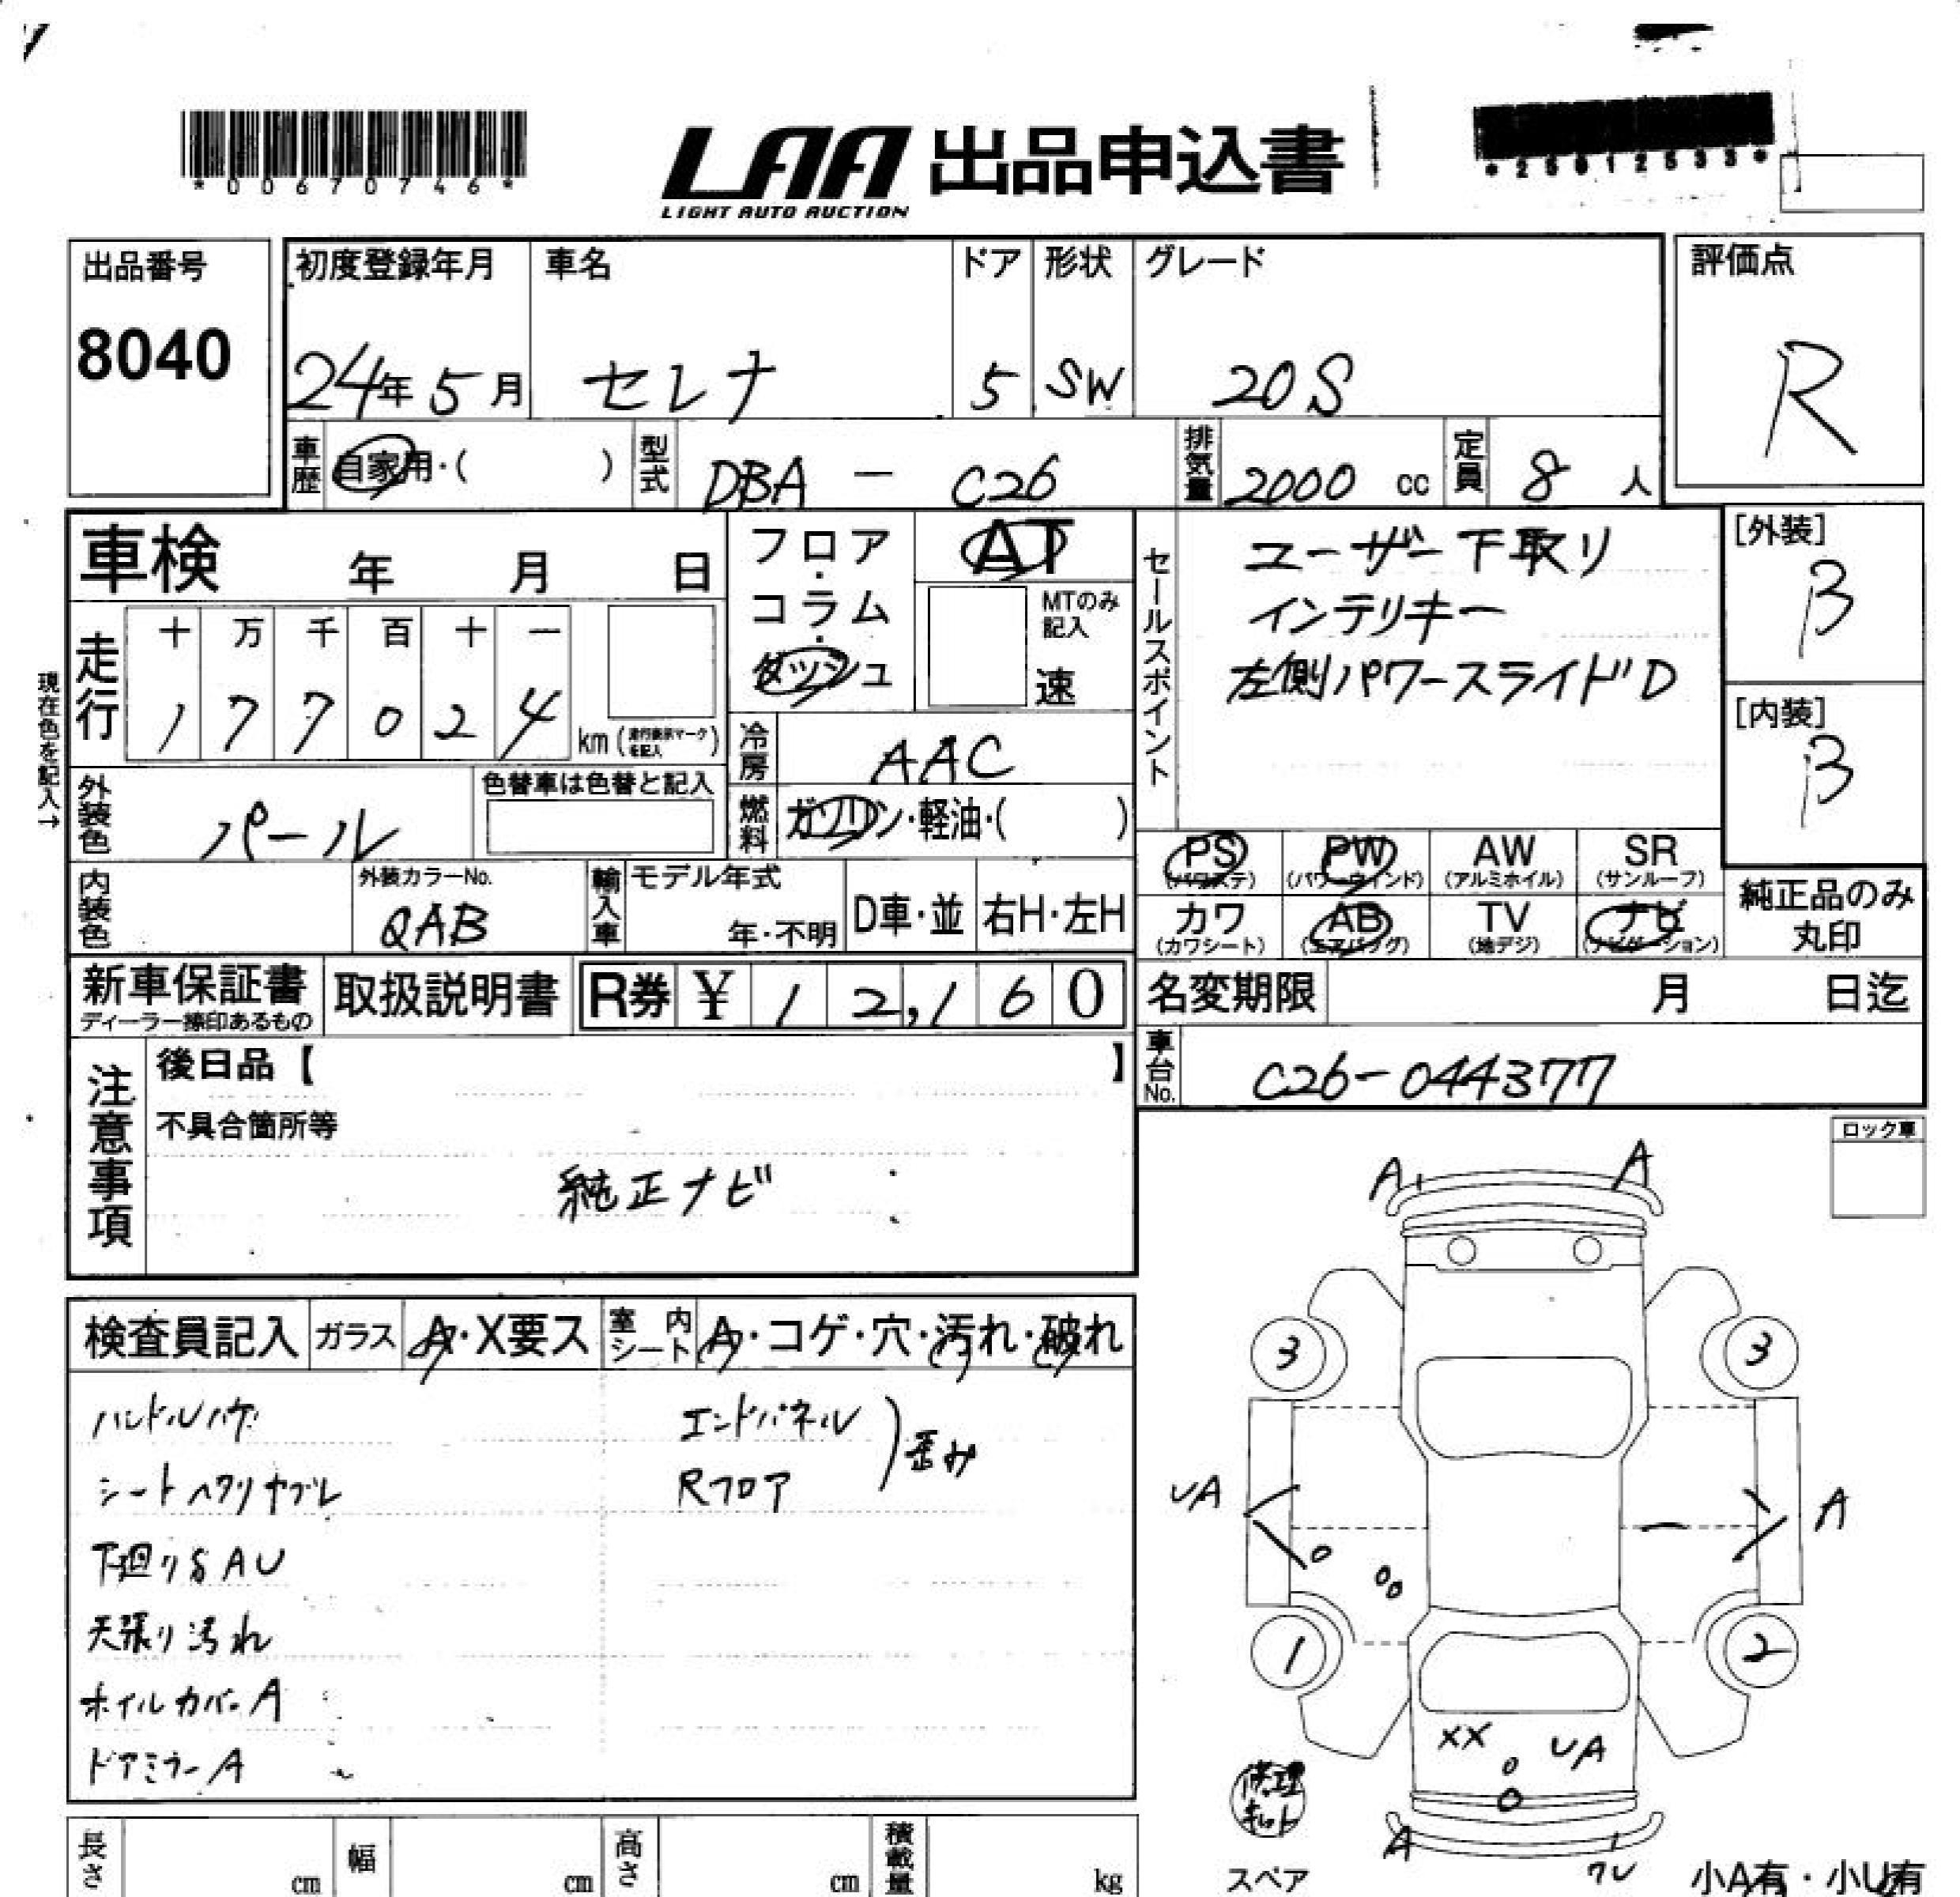 *00670746*
LAA 出品申込書
LIGHT AUTO AUCTION
*25012533*
出品番号
8040
初度登録年月
24年5月
車名
セレナ
ドア
5
形状
SW
グレード
20S
評価点
R
車歴
自家用・( )
型式
DBA - C26
排気量
2000 cc
定員
8 人
車検 年 月 日
フロア・コラム・ダッシュ
AT
MTのみ記入
速
セールスポイント
ユーザー下取り
インテリキー
左側パワースライドD
[外装]
B
[内装]
B
現在色を記入→
走行
十 万 千 百 十 一
1 7 7 0 2 4
km (走行表示マークを記入)
冷房
AAC
燃料
ガソリン・軽油・( )
外装色
パール
色替車は色替と記入
内装色
外装カラーNo.
QAB
輸入車
モデル年式
年・不明
D車・並
右H・左H
PS
(パワステ)
PW
(パワーウインド)
AW
(アルミホイル)
SR
(サンルーフ)
カワ
(カワシート)
AB
(エアバッグ)
TV
(地デジ)
ナビ
(ナビゲーション)
純正品のみ
丸印
新車保証書
ディーラー捺印あるもの
取扱説明書
R券 ¥ 12,160
名変期限 月 日迄
車台No.
C26-044377
注意事項
後日品【 】
不具合箇所等
純正ナビ
ロック車
検査員記入
ガラス
A・X要ス
室内シート
A・コゲ・穴・汚れ・破れ
ハンドルハゲ
シートヘタリヤブレ
下廻りSAU
天張り汚れ
ホイルカバーA
ドアミラーA
エンドパネル
Rフロア
歪み
A A
3 3
UA A
1 2
XX UA
A
修理キット
スペア
小A有・小U有
長さ cm
幅 cm
高さ cm
積載量 kg